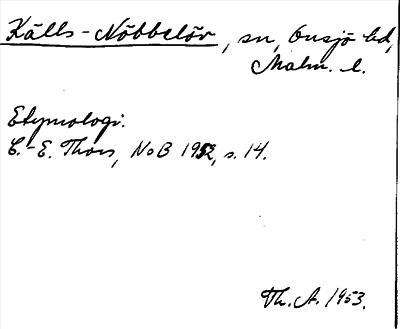 Källs-Nöbbelöv, sn, Onsjö hd,
Malm. l.
Etymologi:
C.-E. Thors, NoB 1952, s. 14.
Th. A. 1953.